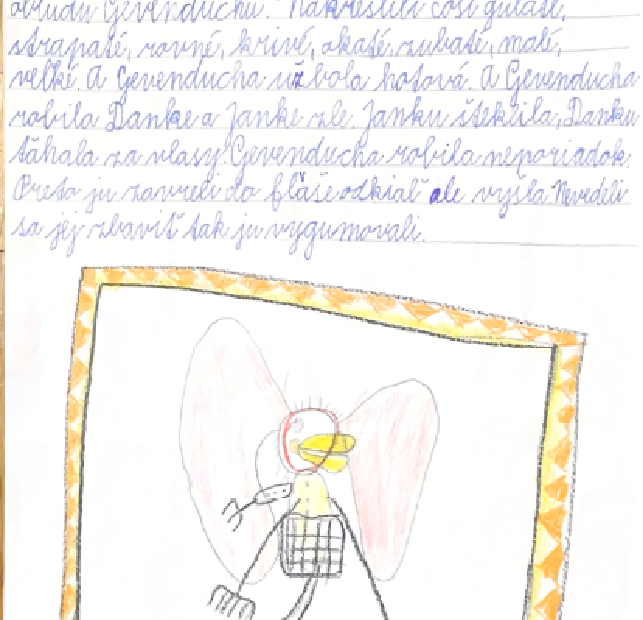 obludu Gevenduchu. Nakreslili čosi guľaté,
strapaté, rovné, krivé, okaté, zubaté, malé,
veľké. A Gevenducha už bola hotová. A Gevenducha
robila Danke a Janke zle. Janku šteklila, Danku
ťahala za vlasy Gevenducha robila neporiadok.
Preto ju zavreli do fľaše odkiaľ ale vyšla. Nevedeli
sa jej zbaviť tak ju vygumovali.